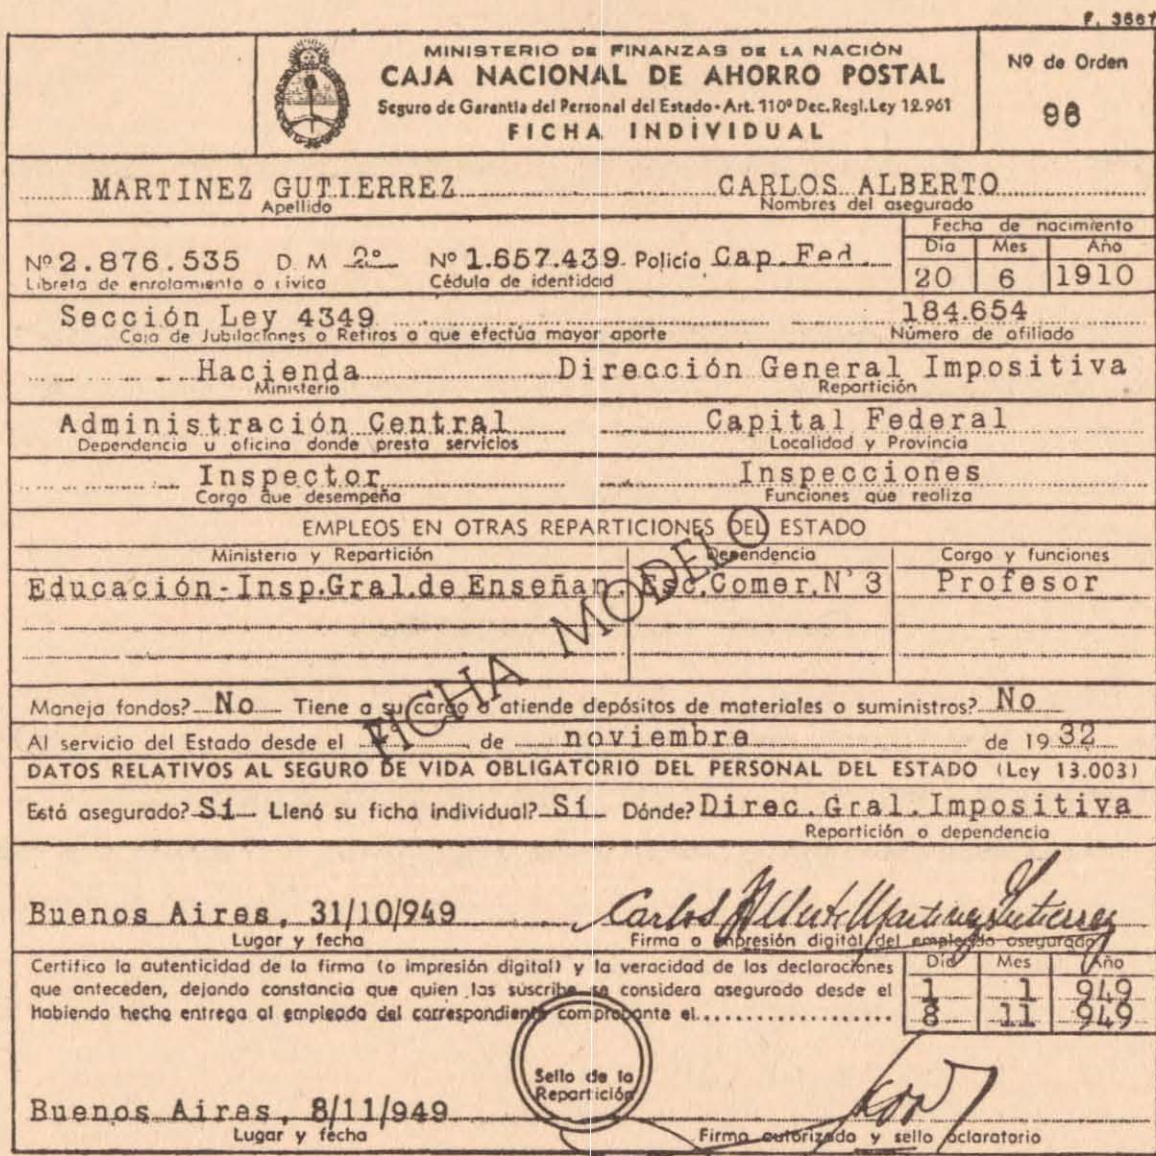 F. 3667
MINISTERIO DE FINANZAS DE LA NACIÓN
CAJA NACIONAL DE AHORRO POSTAL
Seguro de Garantía del Personal del Estado-Art. 110º Dec. Regl. Ley 12.961
FICHA INDIVIDUAL
Nº de Orden
96
MARTINEZ GUTIERREZ CARLOS ALBERTO
Apellido Nombres del asegurado
Fecha de nacimiento
Día Mes Año
Nº 2.876.535 D. M 2º Nº 1.657.439 Policía Cap. Fed. 20 6 1910
Libreta de enrolamiento o cívica Cédula de identidad
Sección Ley 4349 184.654
Caja de Jubilaciones o Retiros a que efectúa mayor aporte Número de afiliado
Hacienda Dirección General Impositiva
Ministerio Repartición
Administración Central Capital Federal
Dependencia u oficina donde presta servicios Localidad y Provincia
Inspector Inspecciones
Cargo que desempeña Funciones que realiza
EMPLEOS EN OTRAS REPARTICIONES DEL ESTADO
Ministerio y Repartición Dependencia Cargo y funciones
Educación-Insp.Gral.de Enseñan. Esc.Comer.N° 3 Profesor
FICHA MODELO
Maneja fondos? No Tiene a su cargo o atiende depósitos de materiales o suministros? No
Al servicio del Estado desde el 1° de noviembre de 1932
DATOS RELATIVOS AL SEGURO DE VIDA OBLIGATORIO DEL PERSONAL DEL ESTADO (Ley 13.003)
Está asegurado? Sí Llenó su ficha individual? Sí Dónde? Direc.Gral.Impositiva
Repartición o dependencia
Buenos Aires, 31/10/949 Carlos Alberto Martinez Gutierrez
Lugar y fecha Firma o impresión digital del empleado asegurado
Certifico la autenticidad de la firma (o impresión digital) y la veracidad de las declaraciones Día Mes Año
que anteceden, dejando constancia que quien las suscribe se considera asegurado desde el 1 1 949
Habiendo hecho entrega al empleado del correspondiente comprobante el.................. 8 11 949
Sello de la
Repartición
Buenos Aires, 8/11/949
Lugar y fecha Firma autorizada y sello aclaratorio